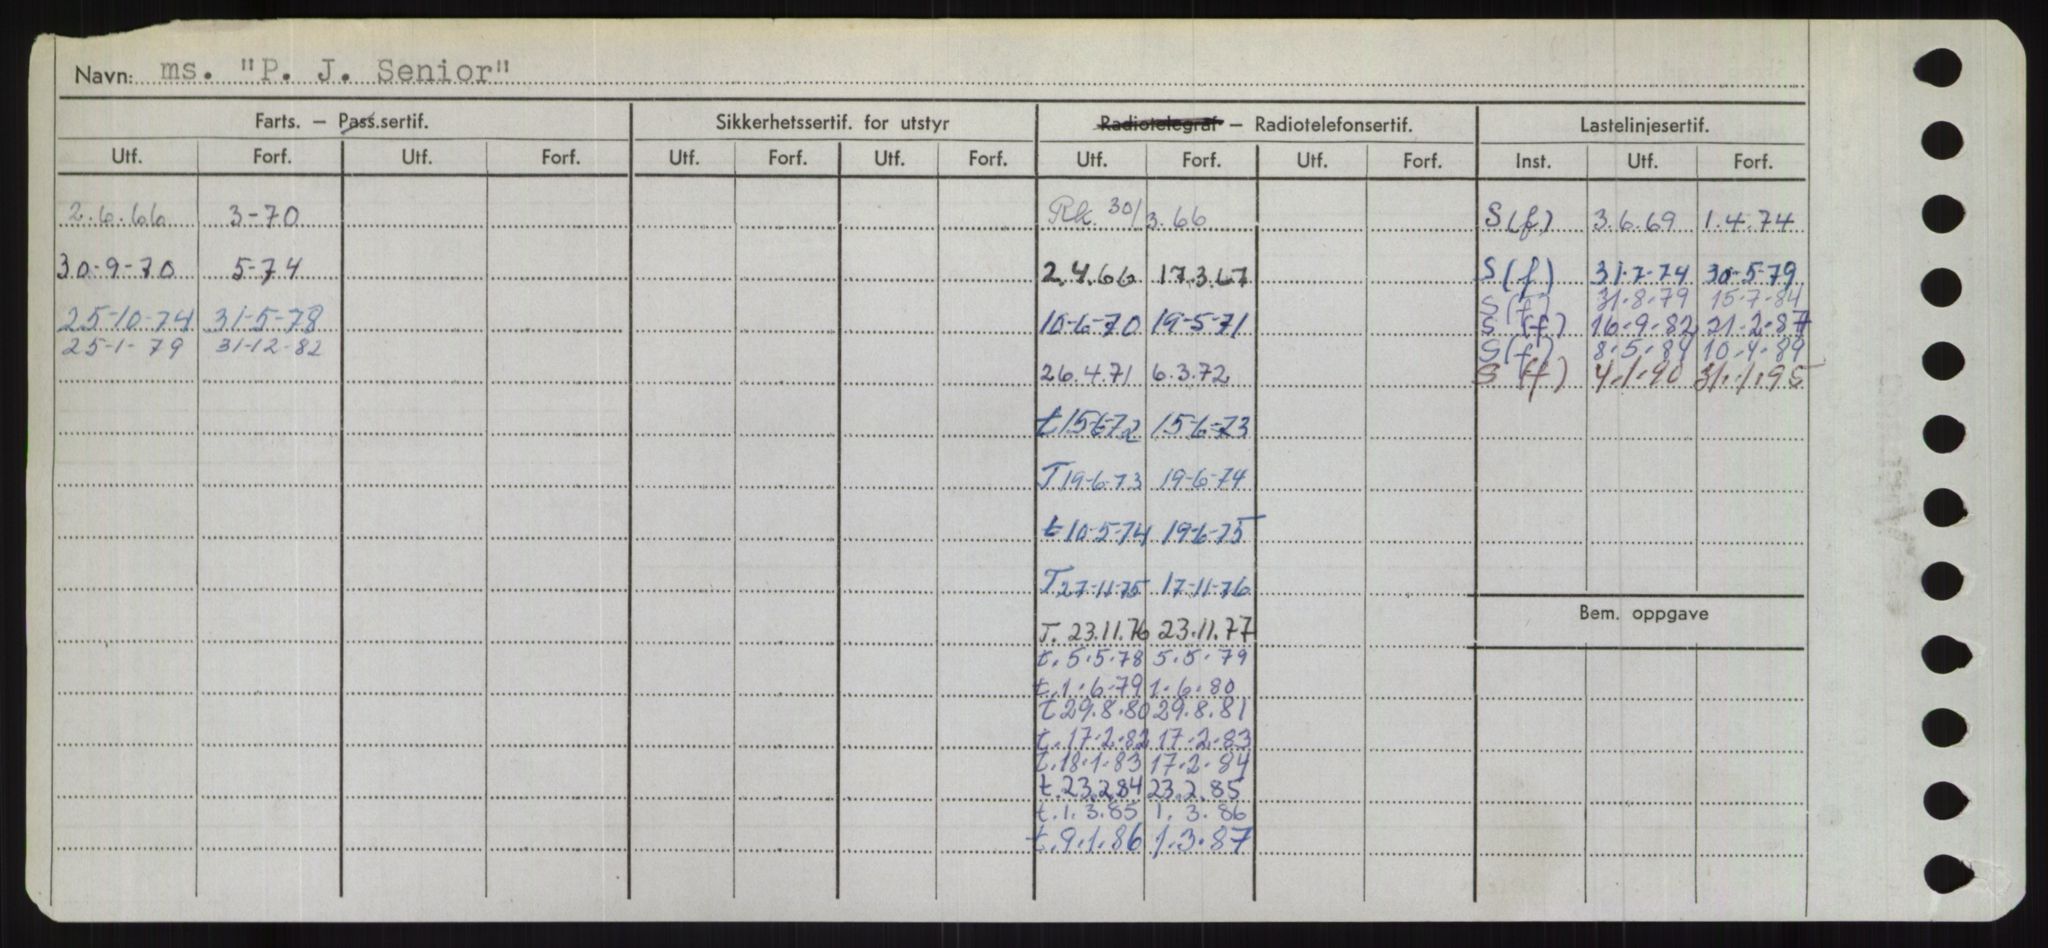 Navn: ms. "P. J. Senior"
Farts. – Pass.sertif. Sikkerhetssertif. for utstyr Radiotelegraf – Radiotelefonsertif. Lastelinjesertif.
Utf. Forf. Utf. Forf. Utf. Forf. Utf. Forf. Utf. Forf. Utf. Forf. Inst. Utf. Forf.
2.6.66 3-70 Rk. 30/3.66 S(f) 3.6.69 1.4.74
30-9-70 5-74 2.4.66 17.3.67 S(f) 31-7-74 30-5-79
S(f) 31-8-79 15-7-84
25-10-74 31-5-78 10-6-70 19-5-71 S(f) 16-9-82 21-2-87
25-1-79 31-12-82 S(f) 10.4.89
26.4.71 6.3.72 S(f) 4.1.90 31.1.95
t 15-6-72 15-6-73
T 19-6-73 19-6-74
t 10-5-74 19-6-75
T 27-11-75 17-11-76
Bem. oppgave
T. 23.11.76 23.11.77
t. 5.5.78 5.5.79
t. 1.6.79 1.6.80
t 29.8.80 29.8.81
t. 17.2.82 17.2.83
t. 18.1.83 17.2.84
t. 23.2.84 23.2.85
t. 1.3.85 1.3.86
t. 9.1.86 1.3.87